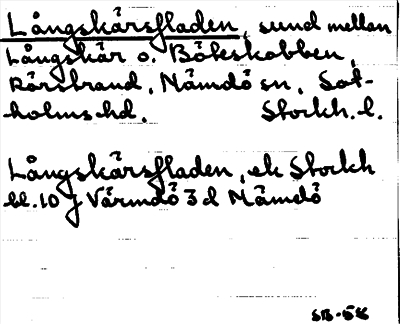 Långskärsfladen, sund mellan
Långskär o. Bökeskobben,
Rörstrand, Nämdö sn, Sot-
holms hd. Stockh. l.
Långskärsfladen, ek Stockh
bl. 10 j Värmdö 3 d Nämdö
SB-58